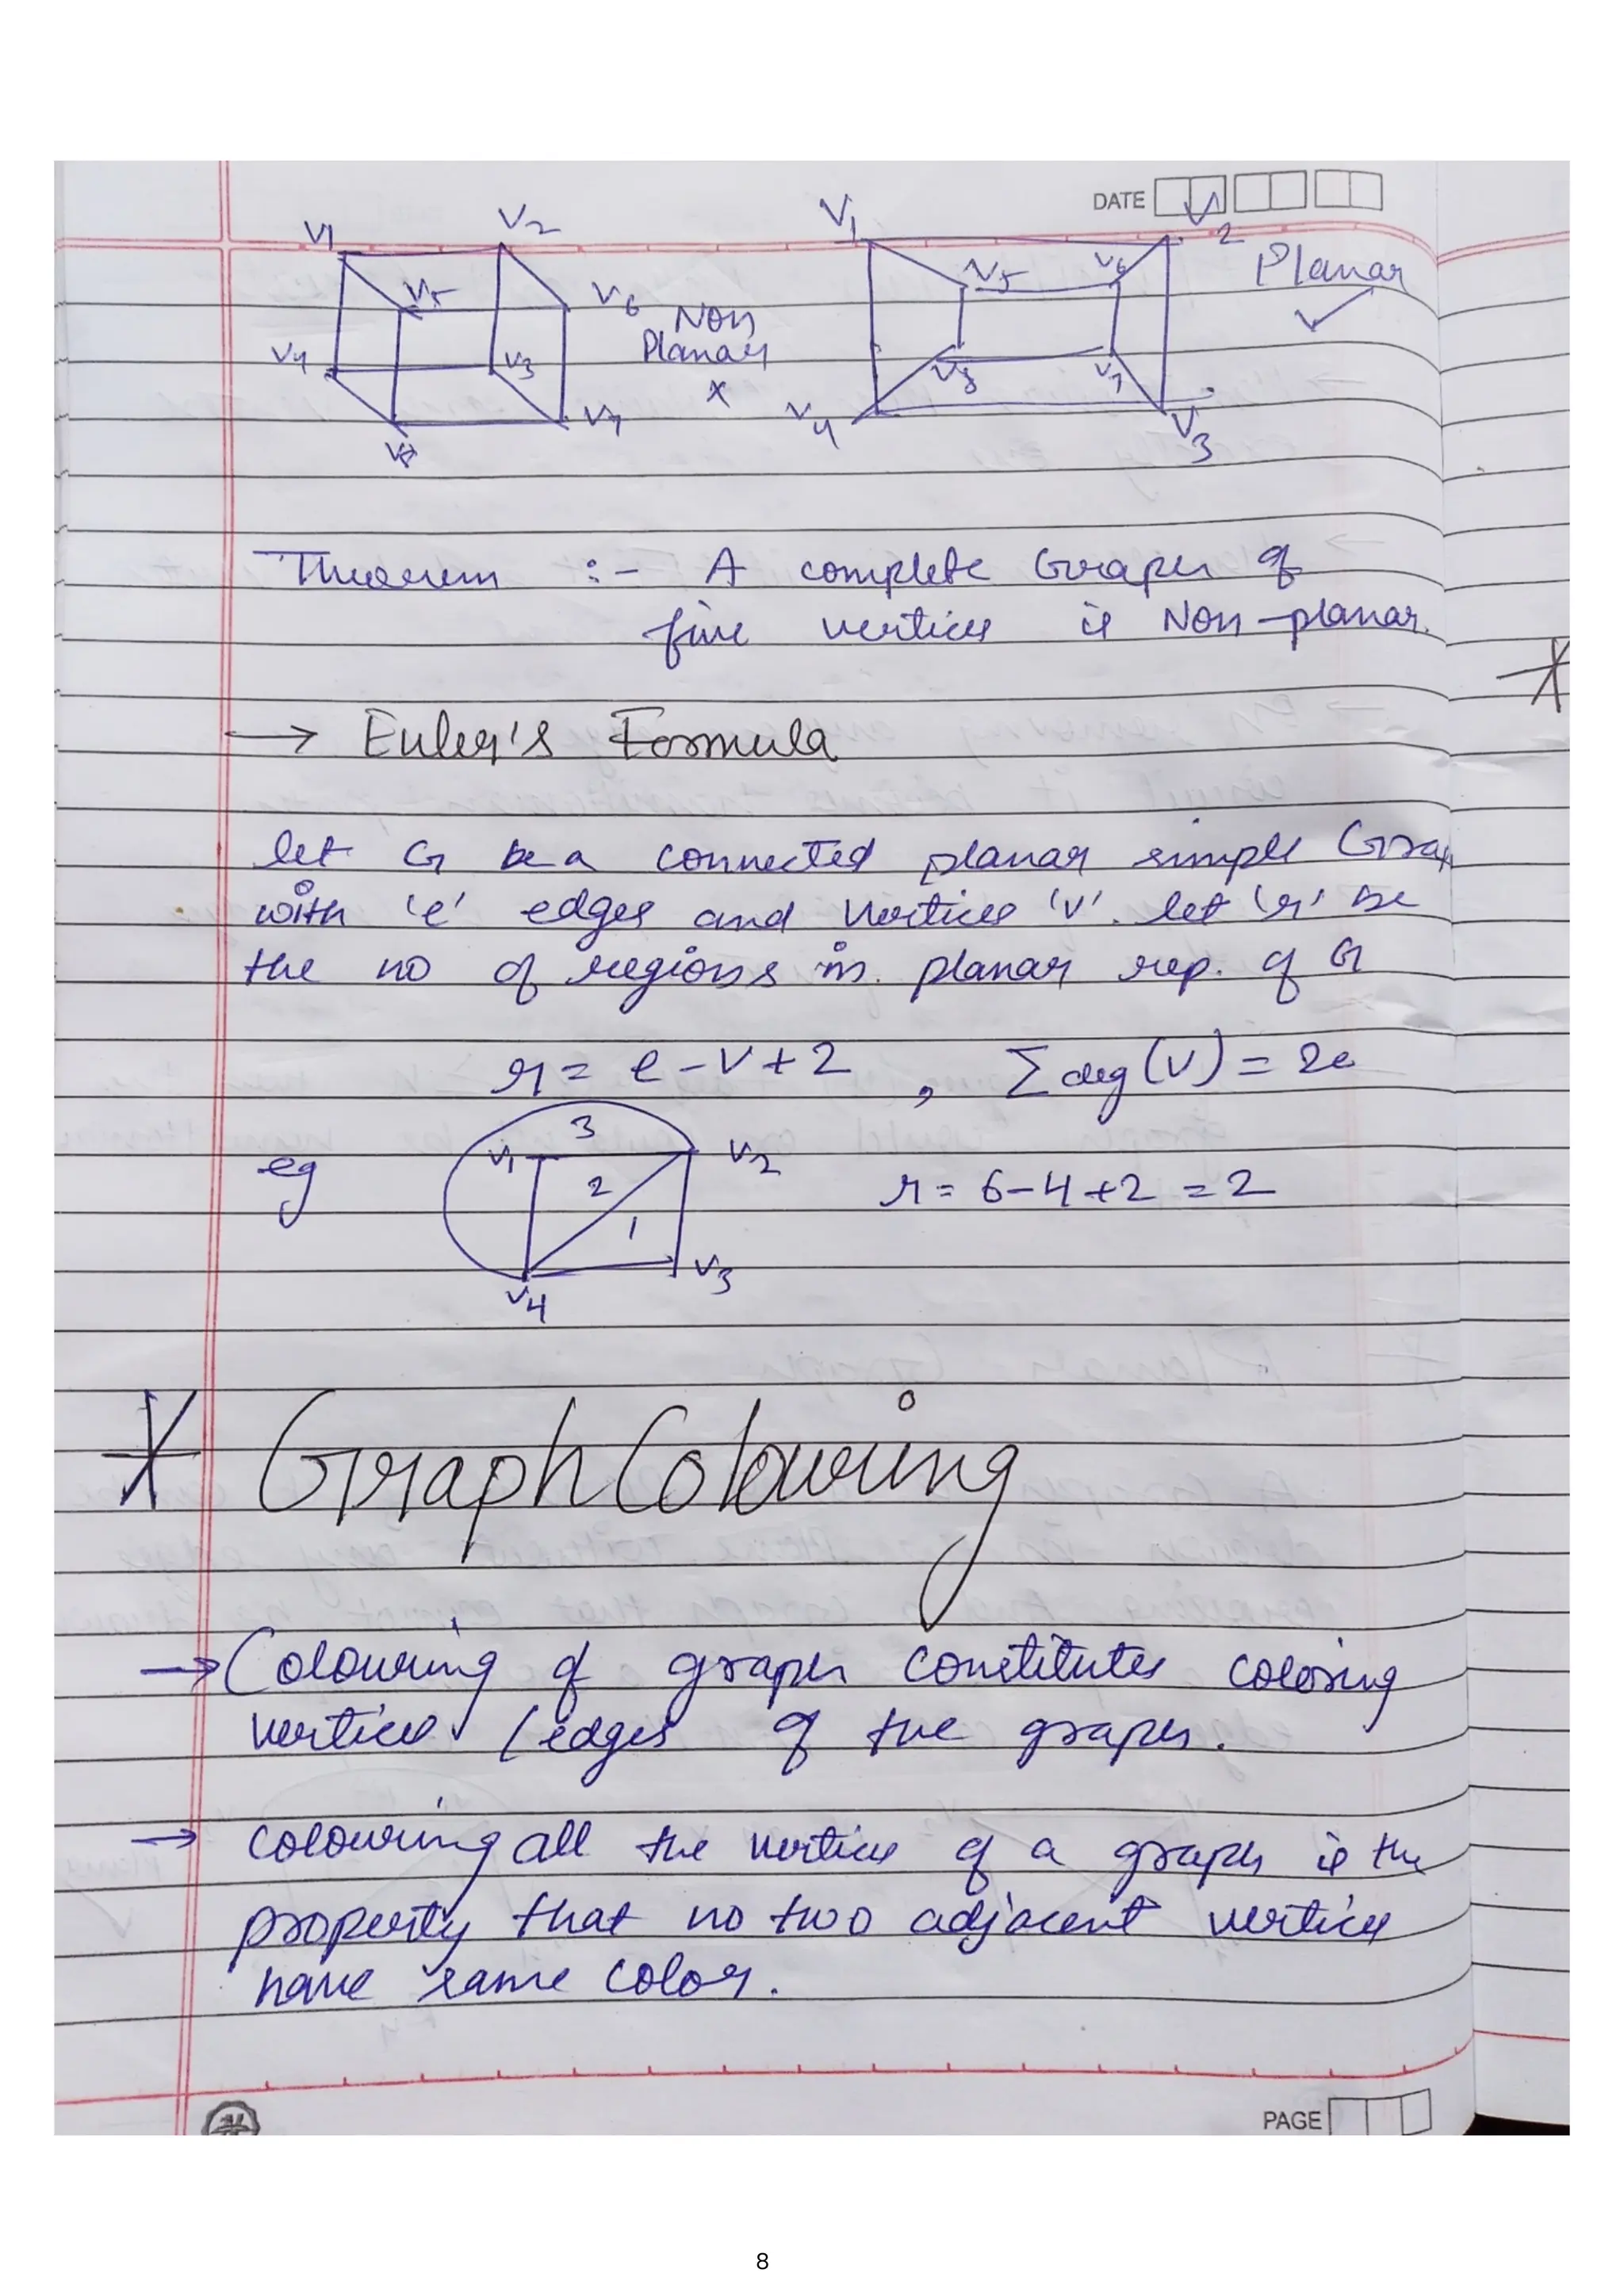 DATE
V1 V2 V1 V2
V5 V6 V5 V6 Planar
Non
V4 V3 Planar V8 V7
x
V7 V4 V3
V8
Theorem :- A complete Graph of
five vertices is Non-planar.
→ Euler's Formula
let G be a connected planar simple Graph
with 'e' edges and vertices 'v'. let 'r' be
the no of regions in planar rep. of G
r = e - v + 2 , Σ deg (v) = 2e
3
eg V1 V2
2 r = 6-4+2 = 2
1
V3
V4
* Graph Colouring
→ Colouring of graph constitutes coloring
vertices / edges of the graph.
→ colouring all the vertices of a graph is the
property that no two adjacent vertices
have same color.
PAGE
8